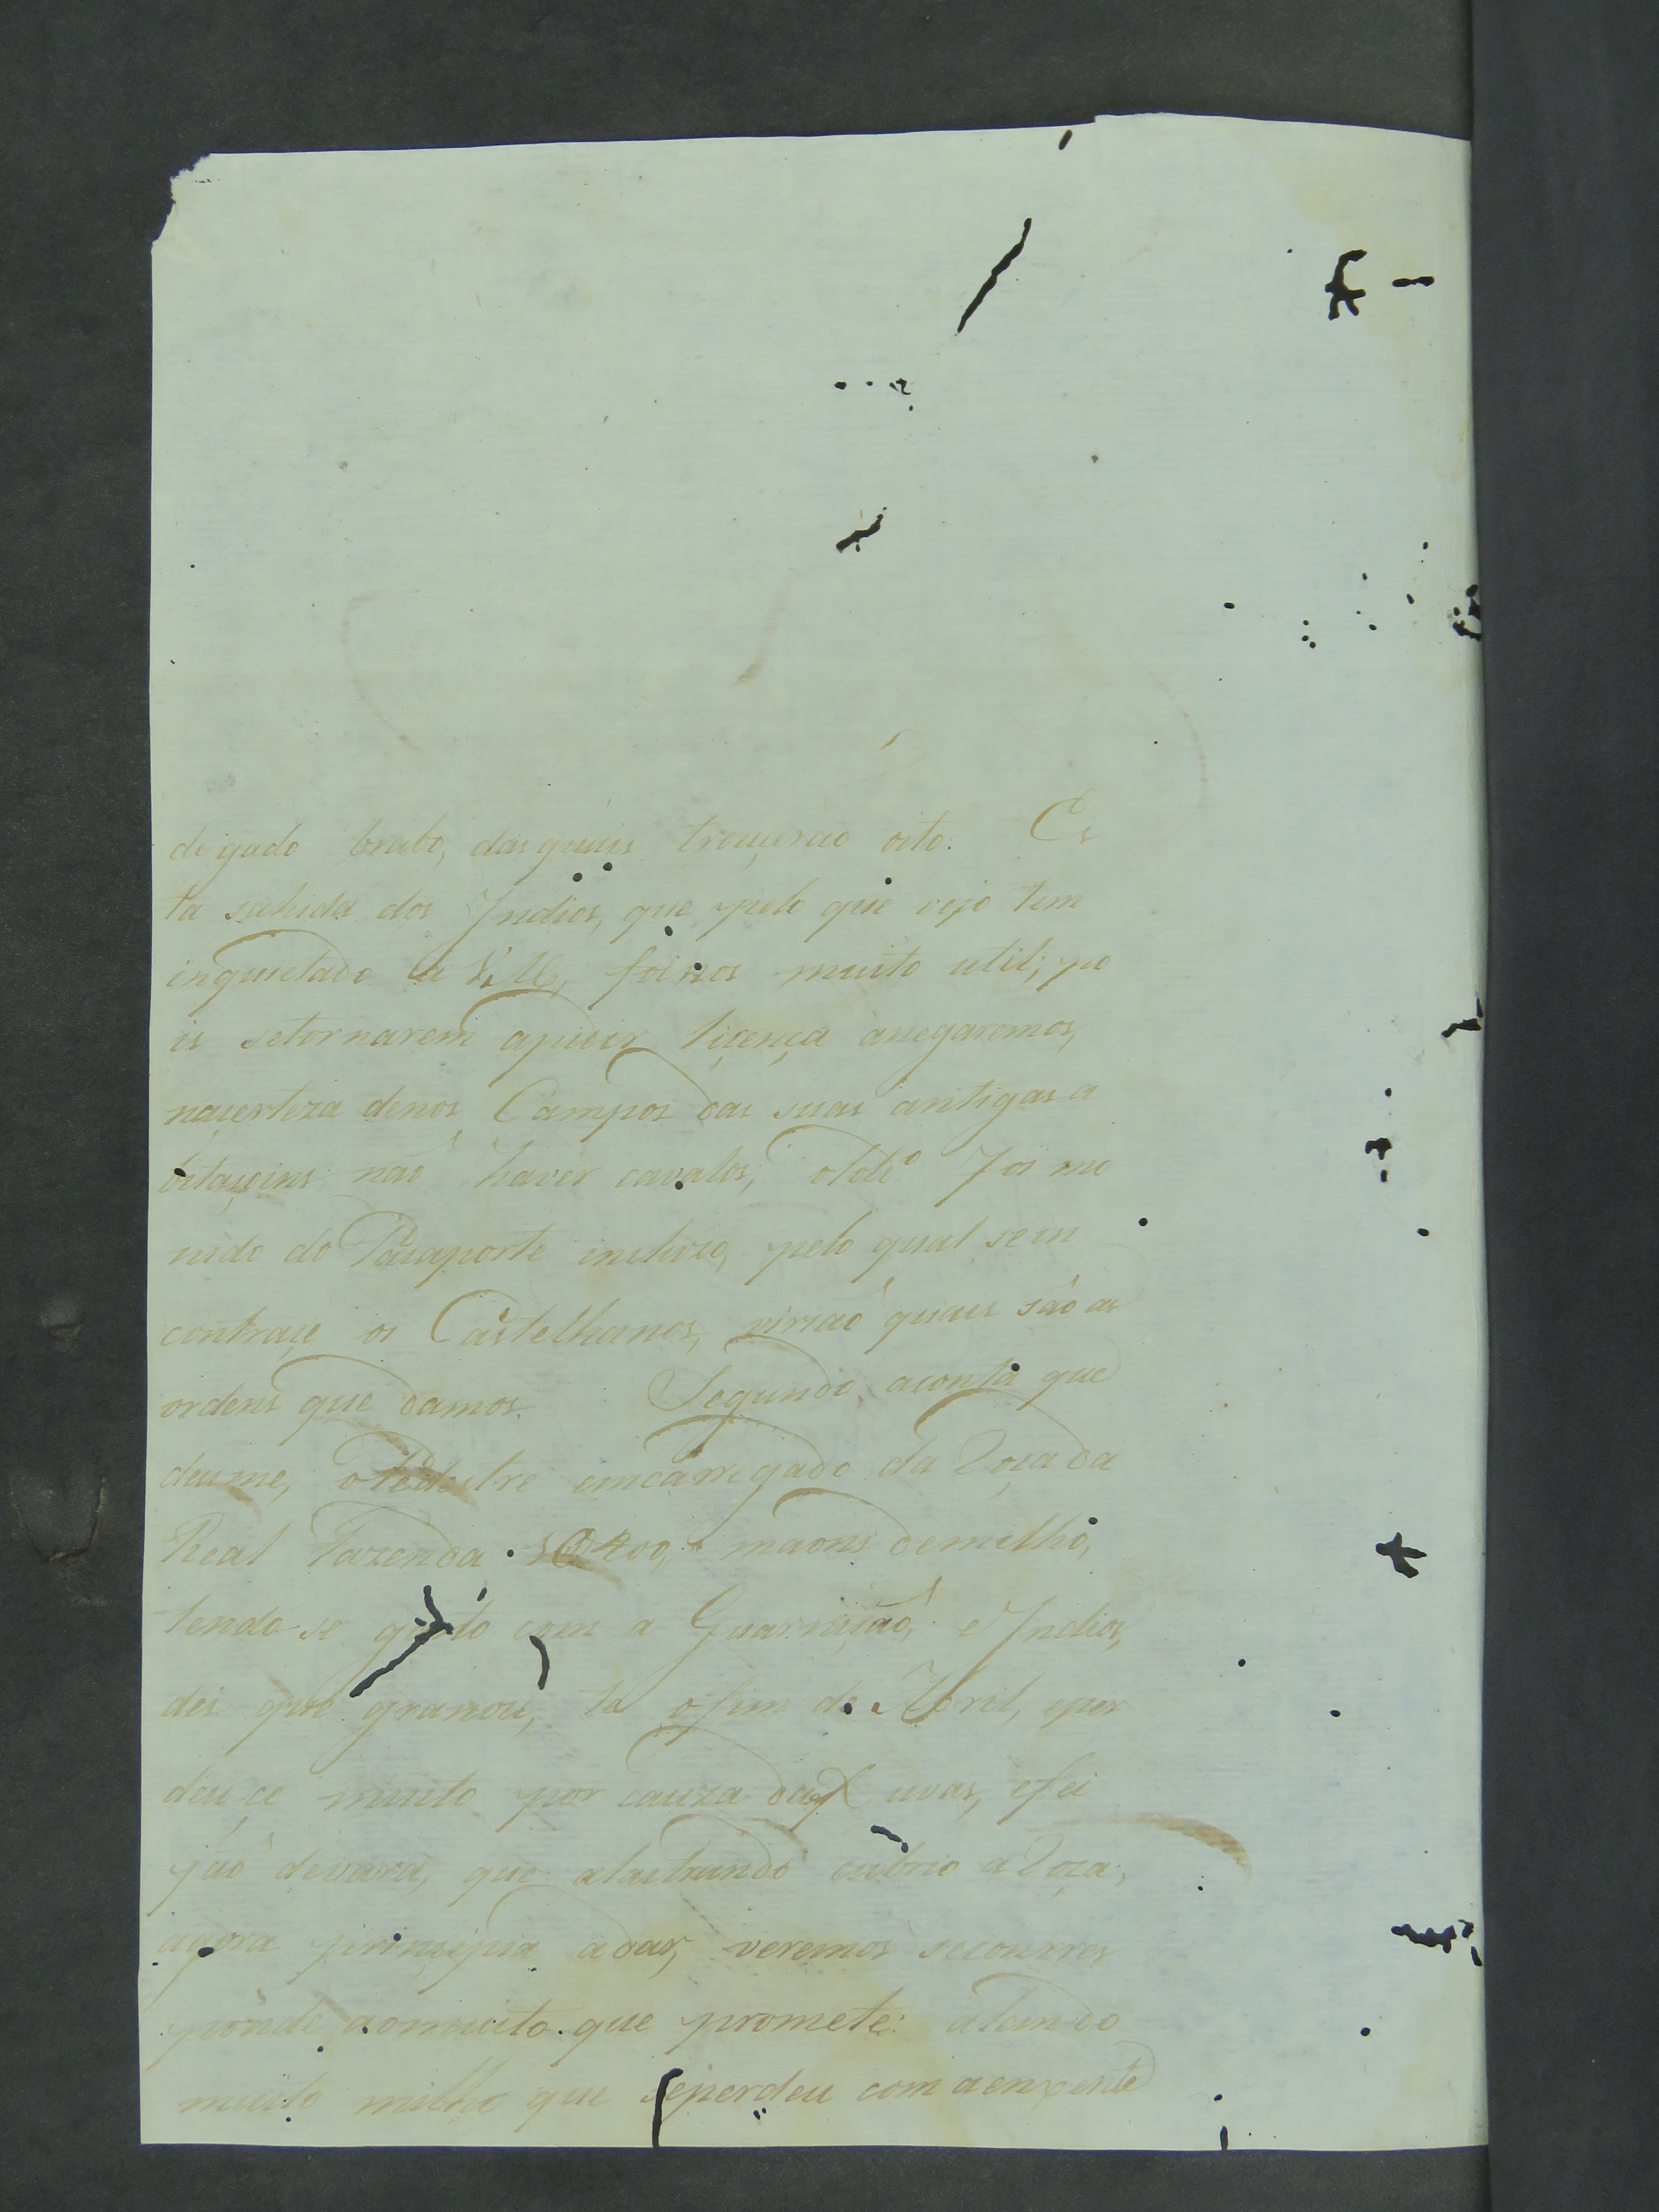 de gado brabo, das quais trouçerao oito. Es
ta sahida dos Indios, que pelo que vejo tem
inquietado a V. M.ce, foi nos muito util; po
is setornarem apidir liçença anegaremos,
naçerteza denos Campos das suas antigas a
bitaçoins não haver cavalos; foi mu
nido do Pasaporte incluzo, pelo qual sein
contraçe os Castelhanos, virião quais são as
ordens que damos. Segundo aconta que
deume, oPedestre emcarregado da Roça da
Real Fazenda maons demilho,
tendo-se gasto com a Guarnição, e Indios,
des que granou, ta ofim de Abril, eper
deu-ce muito por cauza das uvas, efei
jão devara, que alastrando cubrio a Roça;
agora prinçipia adar, veremos secorres
ponde aomuito que promete: alem do
muito milho que seperdeu com aenxente